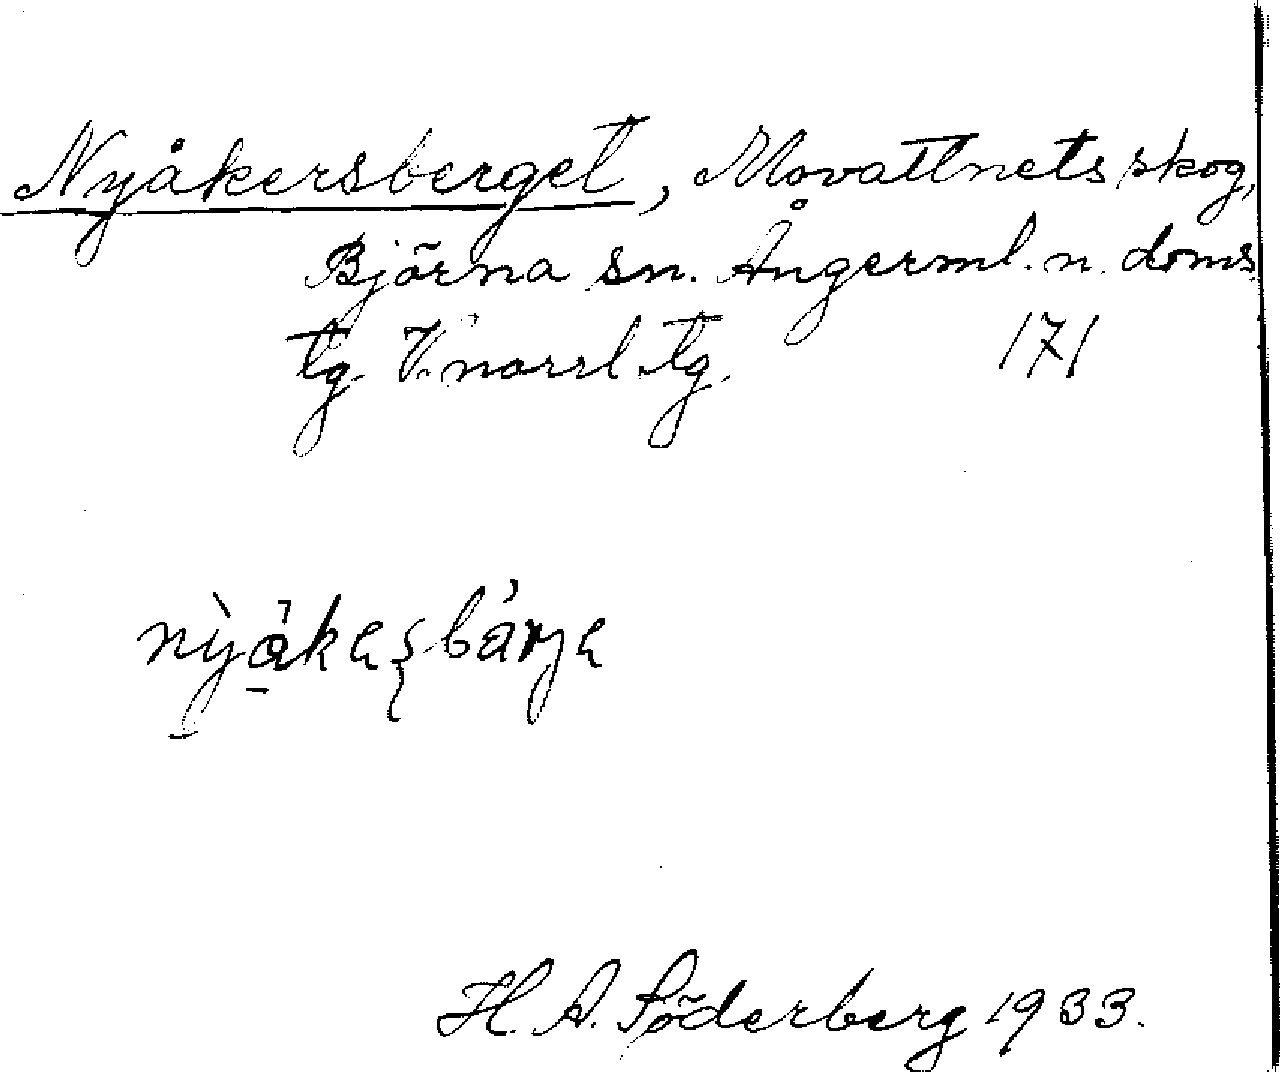 Nyåkersberget, Movattnets skog,
Björna sn. Ångerml. n. doms.
tg. V. norrl. tg. 171
H. A. Söderberg 1933.